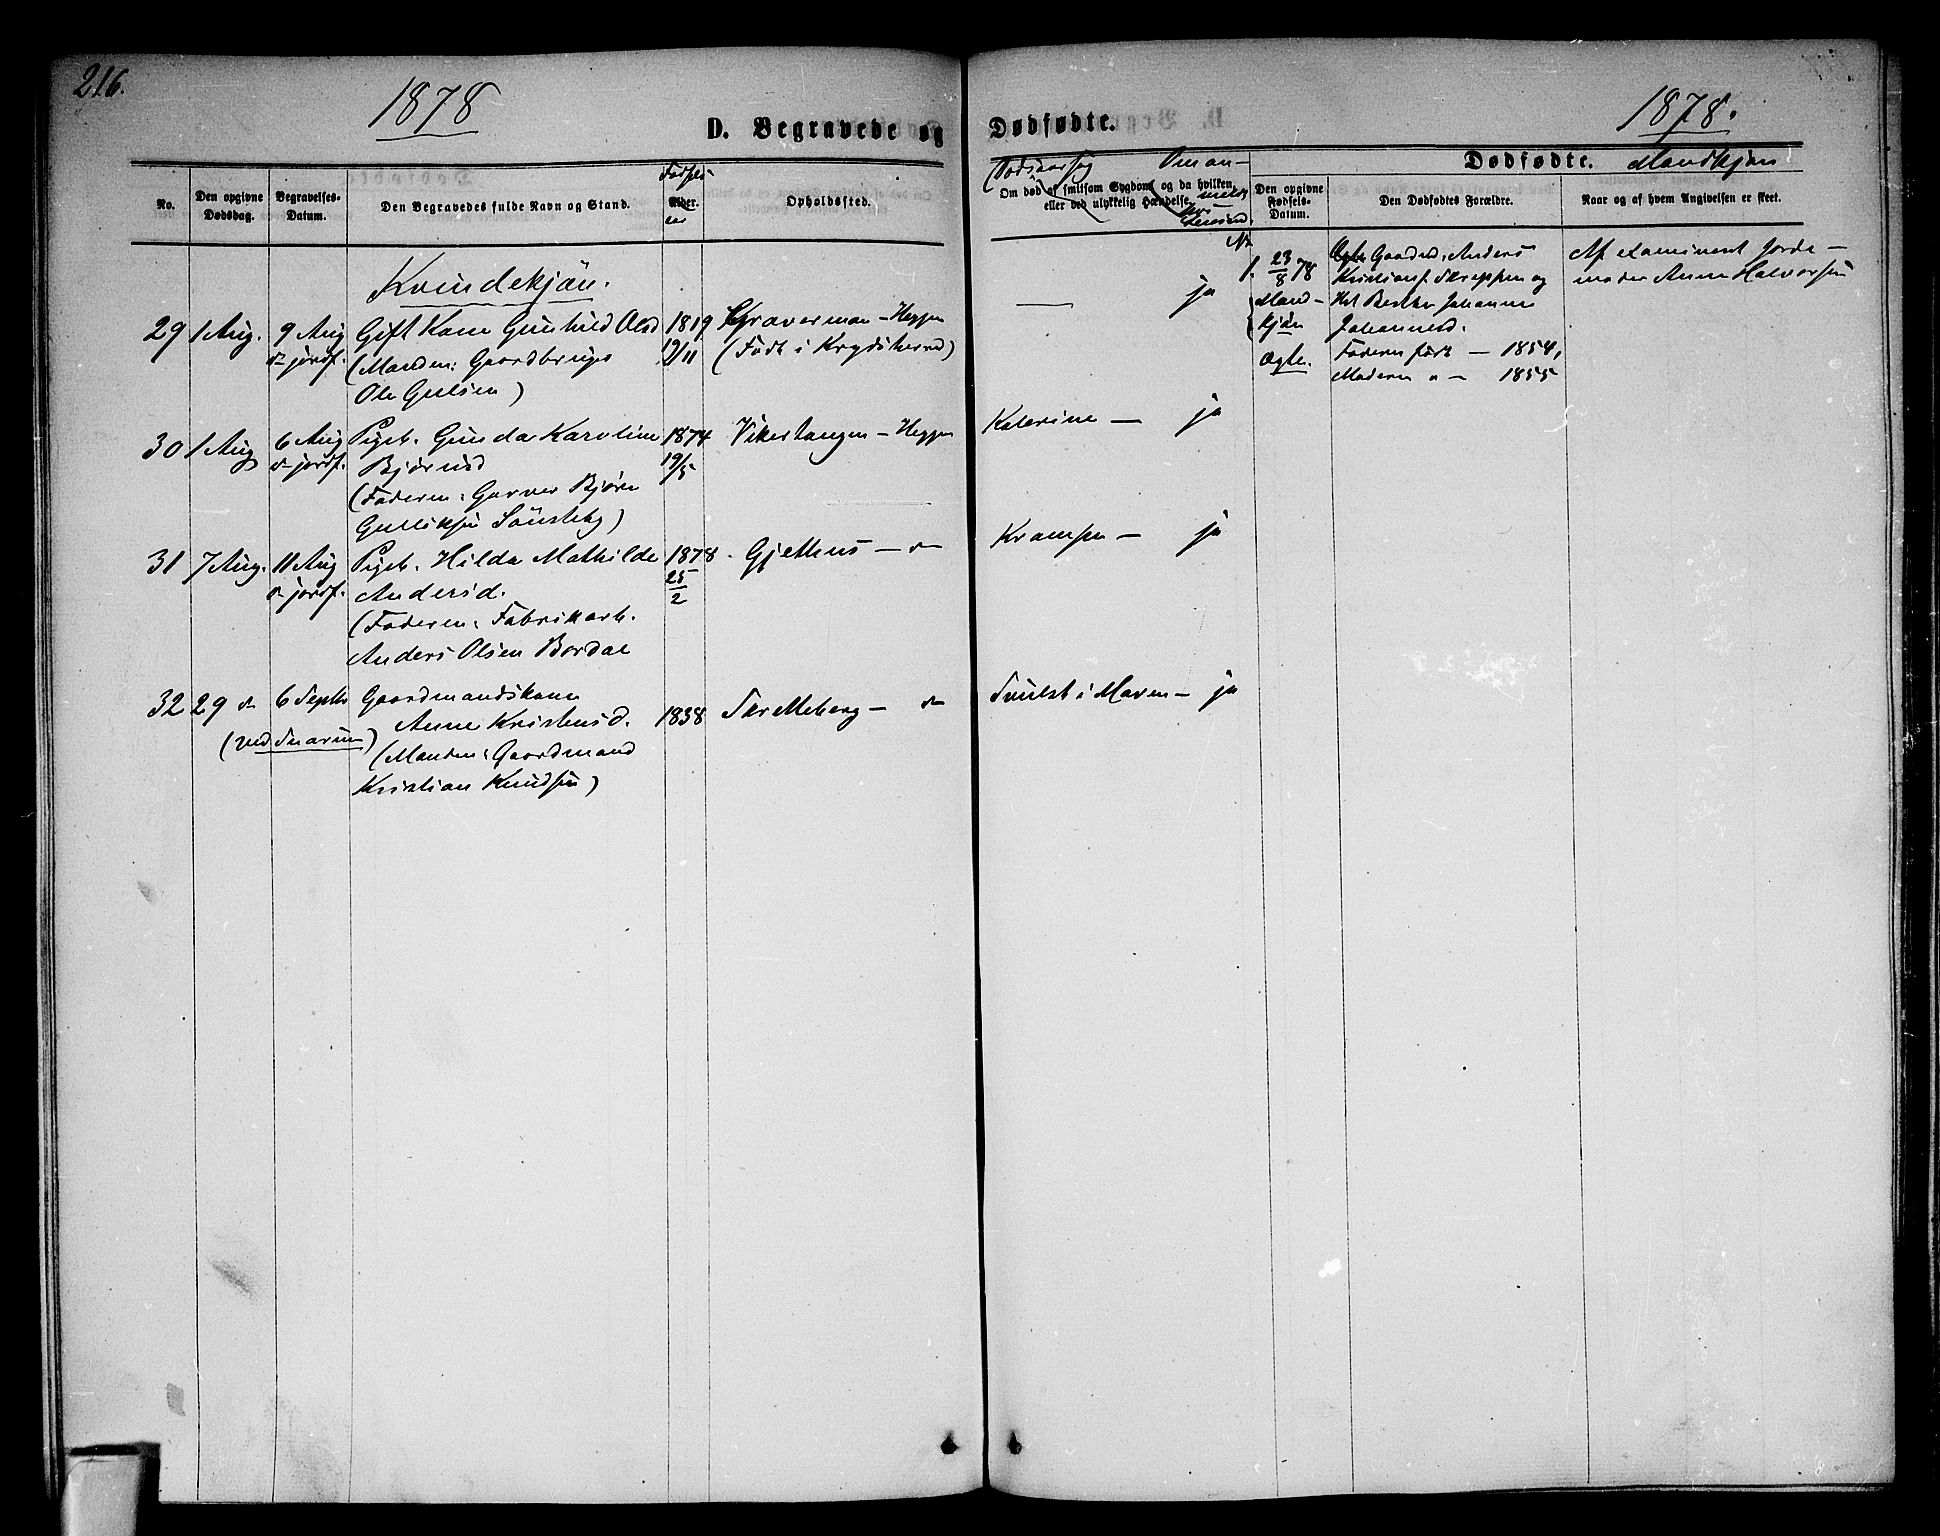 216.
1878
D. Begravede og
No.
Den opgivne Dødsdag.
Begravelses-Datum.
Den Begravedes fulde Navn og Stand.
Fødsels-
Alder.
aar
Opholdssted.
Kvindekjön.
29 1 Aug. 9 Aug Gift Kone Gunhild Olsd 1819 Graverman - Heggen
jordf. (Manden: Gaardbruger 19/11 (Født i Krydsherred)
Ole Gulsen)
30 1 Aug 6 Aug Pigeb. Gunda Karoline 1874 Vikertangen - Heggen
jordf. Bjørnsd 19/5
(Faderen: Garver Bjørn
Gulliksen Sönsteby)
31 7 Aug. 11 Aug Pigeb. Hilda Mathilde 1878 Gjethus -
jordf. Andersd. 25/2
(Faderen: Fabrikarb.
Anders Olsen Bordal
32 29 6 Septb Gaardmandskone
Anne Kristensd. 1838 Skretteberg -
(ved Snarum) (Manden: Gaardmand
Kristian Knudsen)
Dødsfødte.
1878.
Dødsaarsag
Om an-
meldt
Om død af smitsom Sygdom, og da hvilken,
eller ved ulykkelig Hændelse.
Dødfødte. Mandkjøn
Den opgivne Fødsels-Datum.
Den Dødfødtes Forældre.
Naar og af hvem Angivelsen er skeet.
No
— ja
Katerine — ja
Krampe — ja
Svulst i Maven — ja
1. 23/8 78 Gaardm. Anders Af examineret Jorde-
Kristians. Skreppen og moder Anne Halvorsen
Mand- Berthe Johanne
kjön Johannesd.
Ægte. Faderen født — 1854,
Moderen — 1855